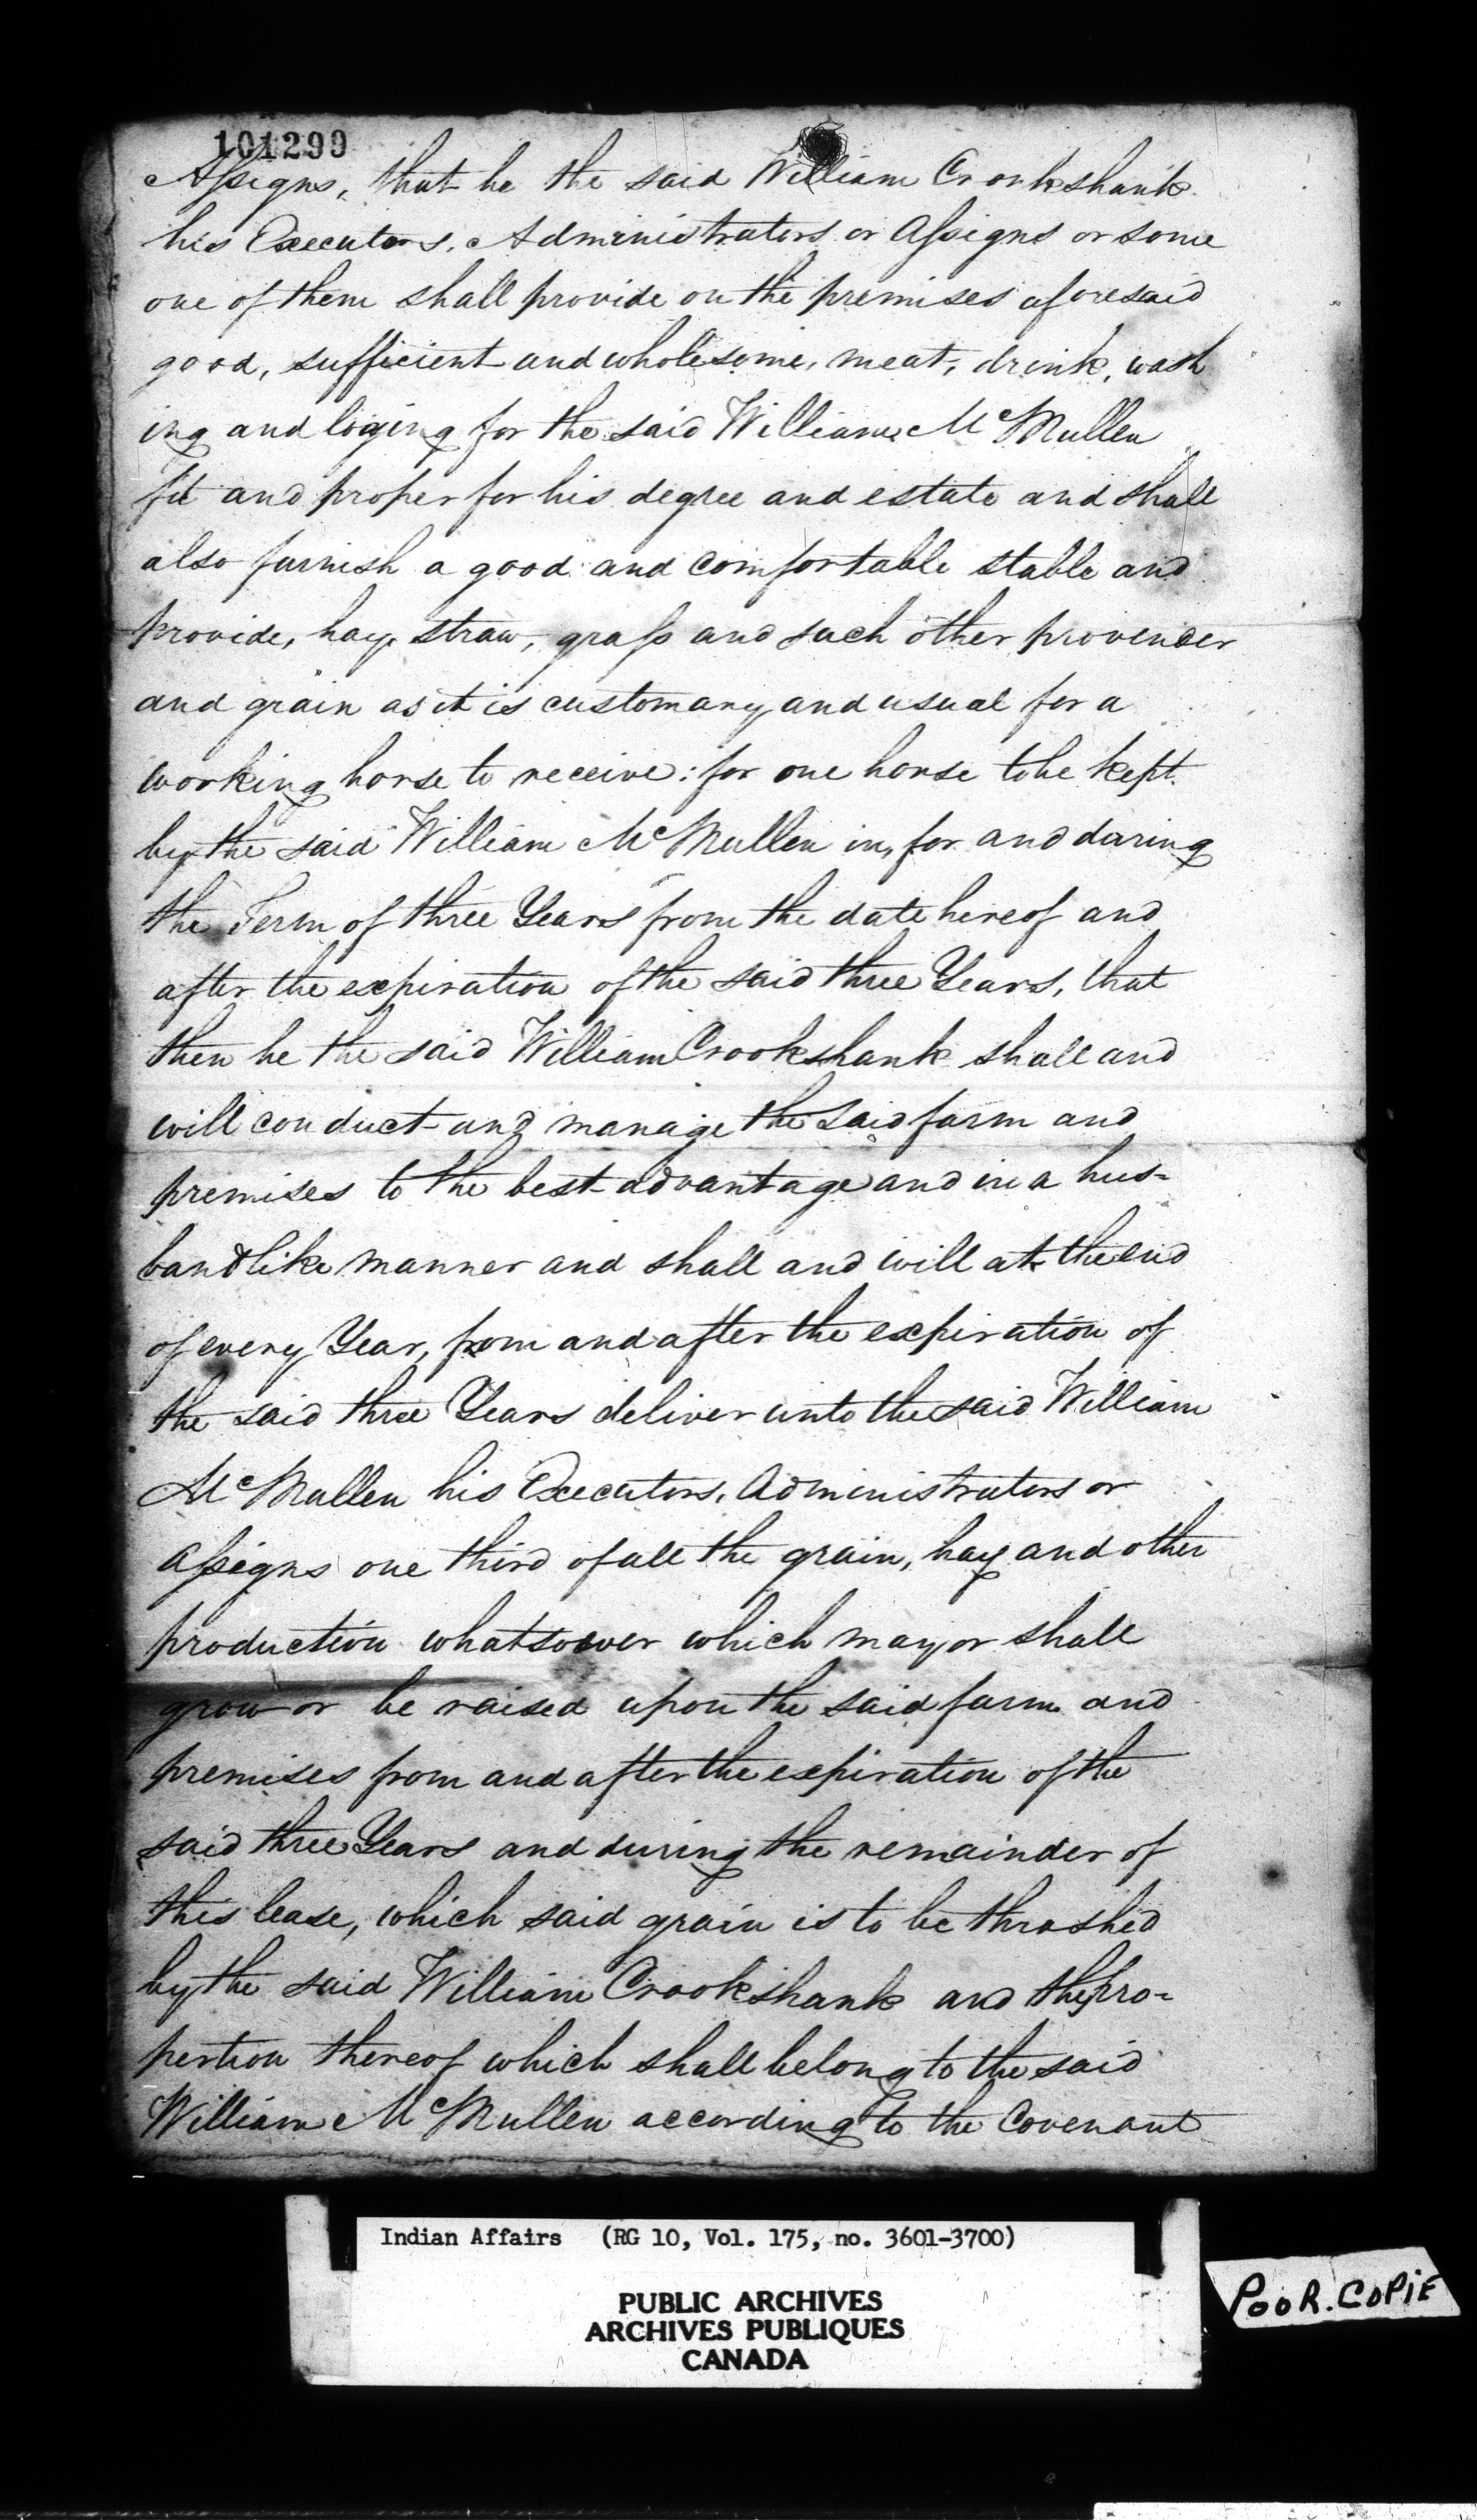 101299
Assigns, that he the said William Crookshank
his Executors, Administrators or Assigns or some
one of them shall provide on the premises aforesaid
good, sufficient and wholesome, meat, drink, wash
ing and loging for the said William McMullen
fit and proper for his degree and estate and shall
also furnish a good and comfortable stable and
provide, hay, straw, grass and such other provender
and grain as it is customary and usual for a
working horse to receive: for one horse to be kept
by the said William McMullen in, for and during
the Term of three Years from the date hereof and
after the expiration of the said three Years, that
then he the said William Crookshank shall and
will conduct and manage the said farm and
premises to the best advantage and in a hus-
bandlike manner and shall and will at the end
of every Year, from and after the expiration of
the said three Years deliver unto the said William
McMullen his Executors, Administrators or
assigns one third of all the grain, hay and other
production whatsoever which may or shall
grow or be raised upon the said farm and
premises from and after the expiration of the
said three Years and during the remainder of
this lease, which said grain is to be thrashed
by the said William Crookshank and the pro-
portion thereof which shall belong to the said
William McMullen according to the Covenant
Indian Affairs (RG 10, Vol. 175, no. 3601-3700)
PUBLIC ARCHIVES
ARCHIVES PUBLIQUES
CANADA
POOR.COPIE